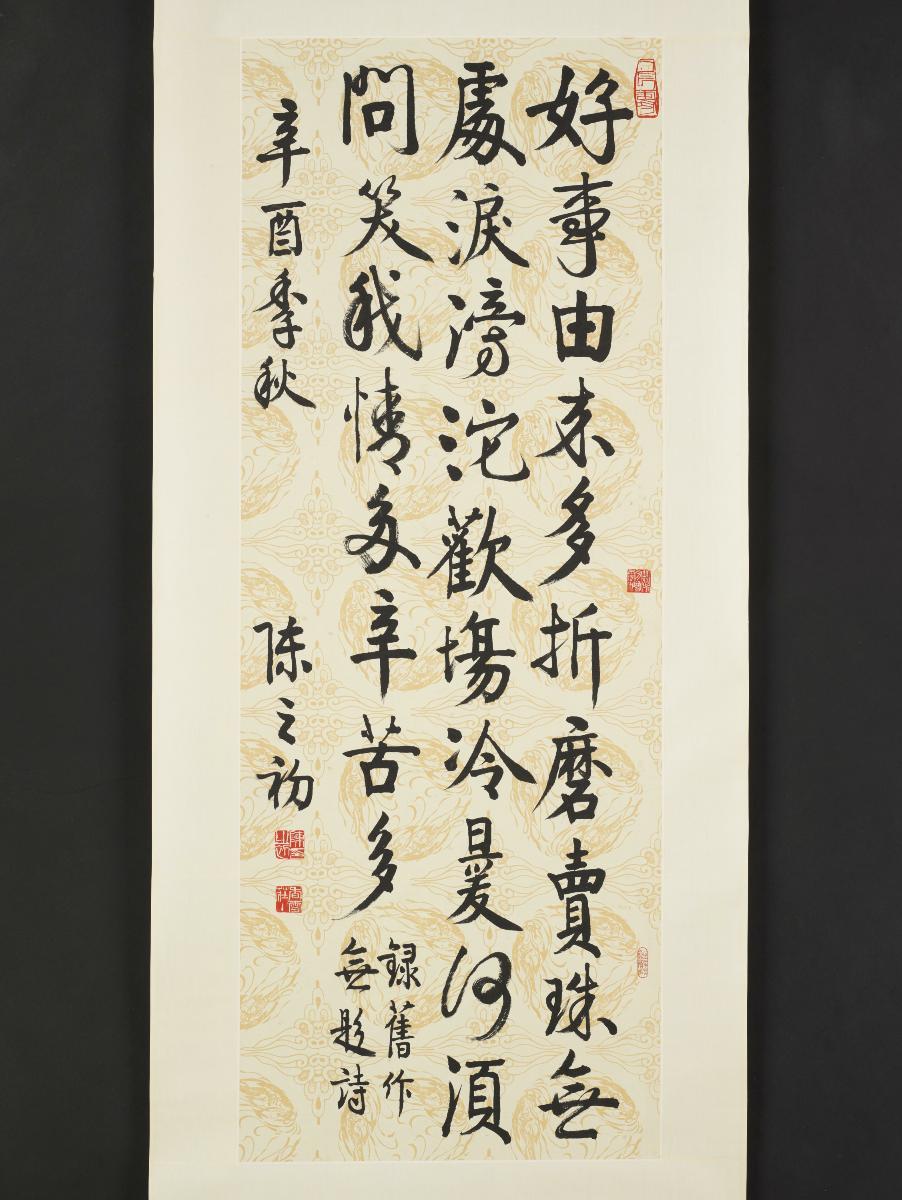 好事由来多折磨賣珠無
處淚滂沱歡場冷暖何須
問笑我情多辛苦多
録舊作
無題詩
辛酉季秋
陳之初